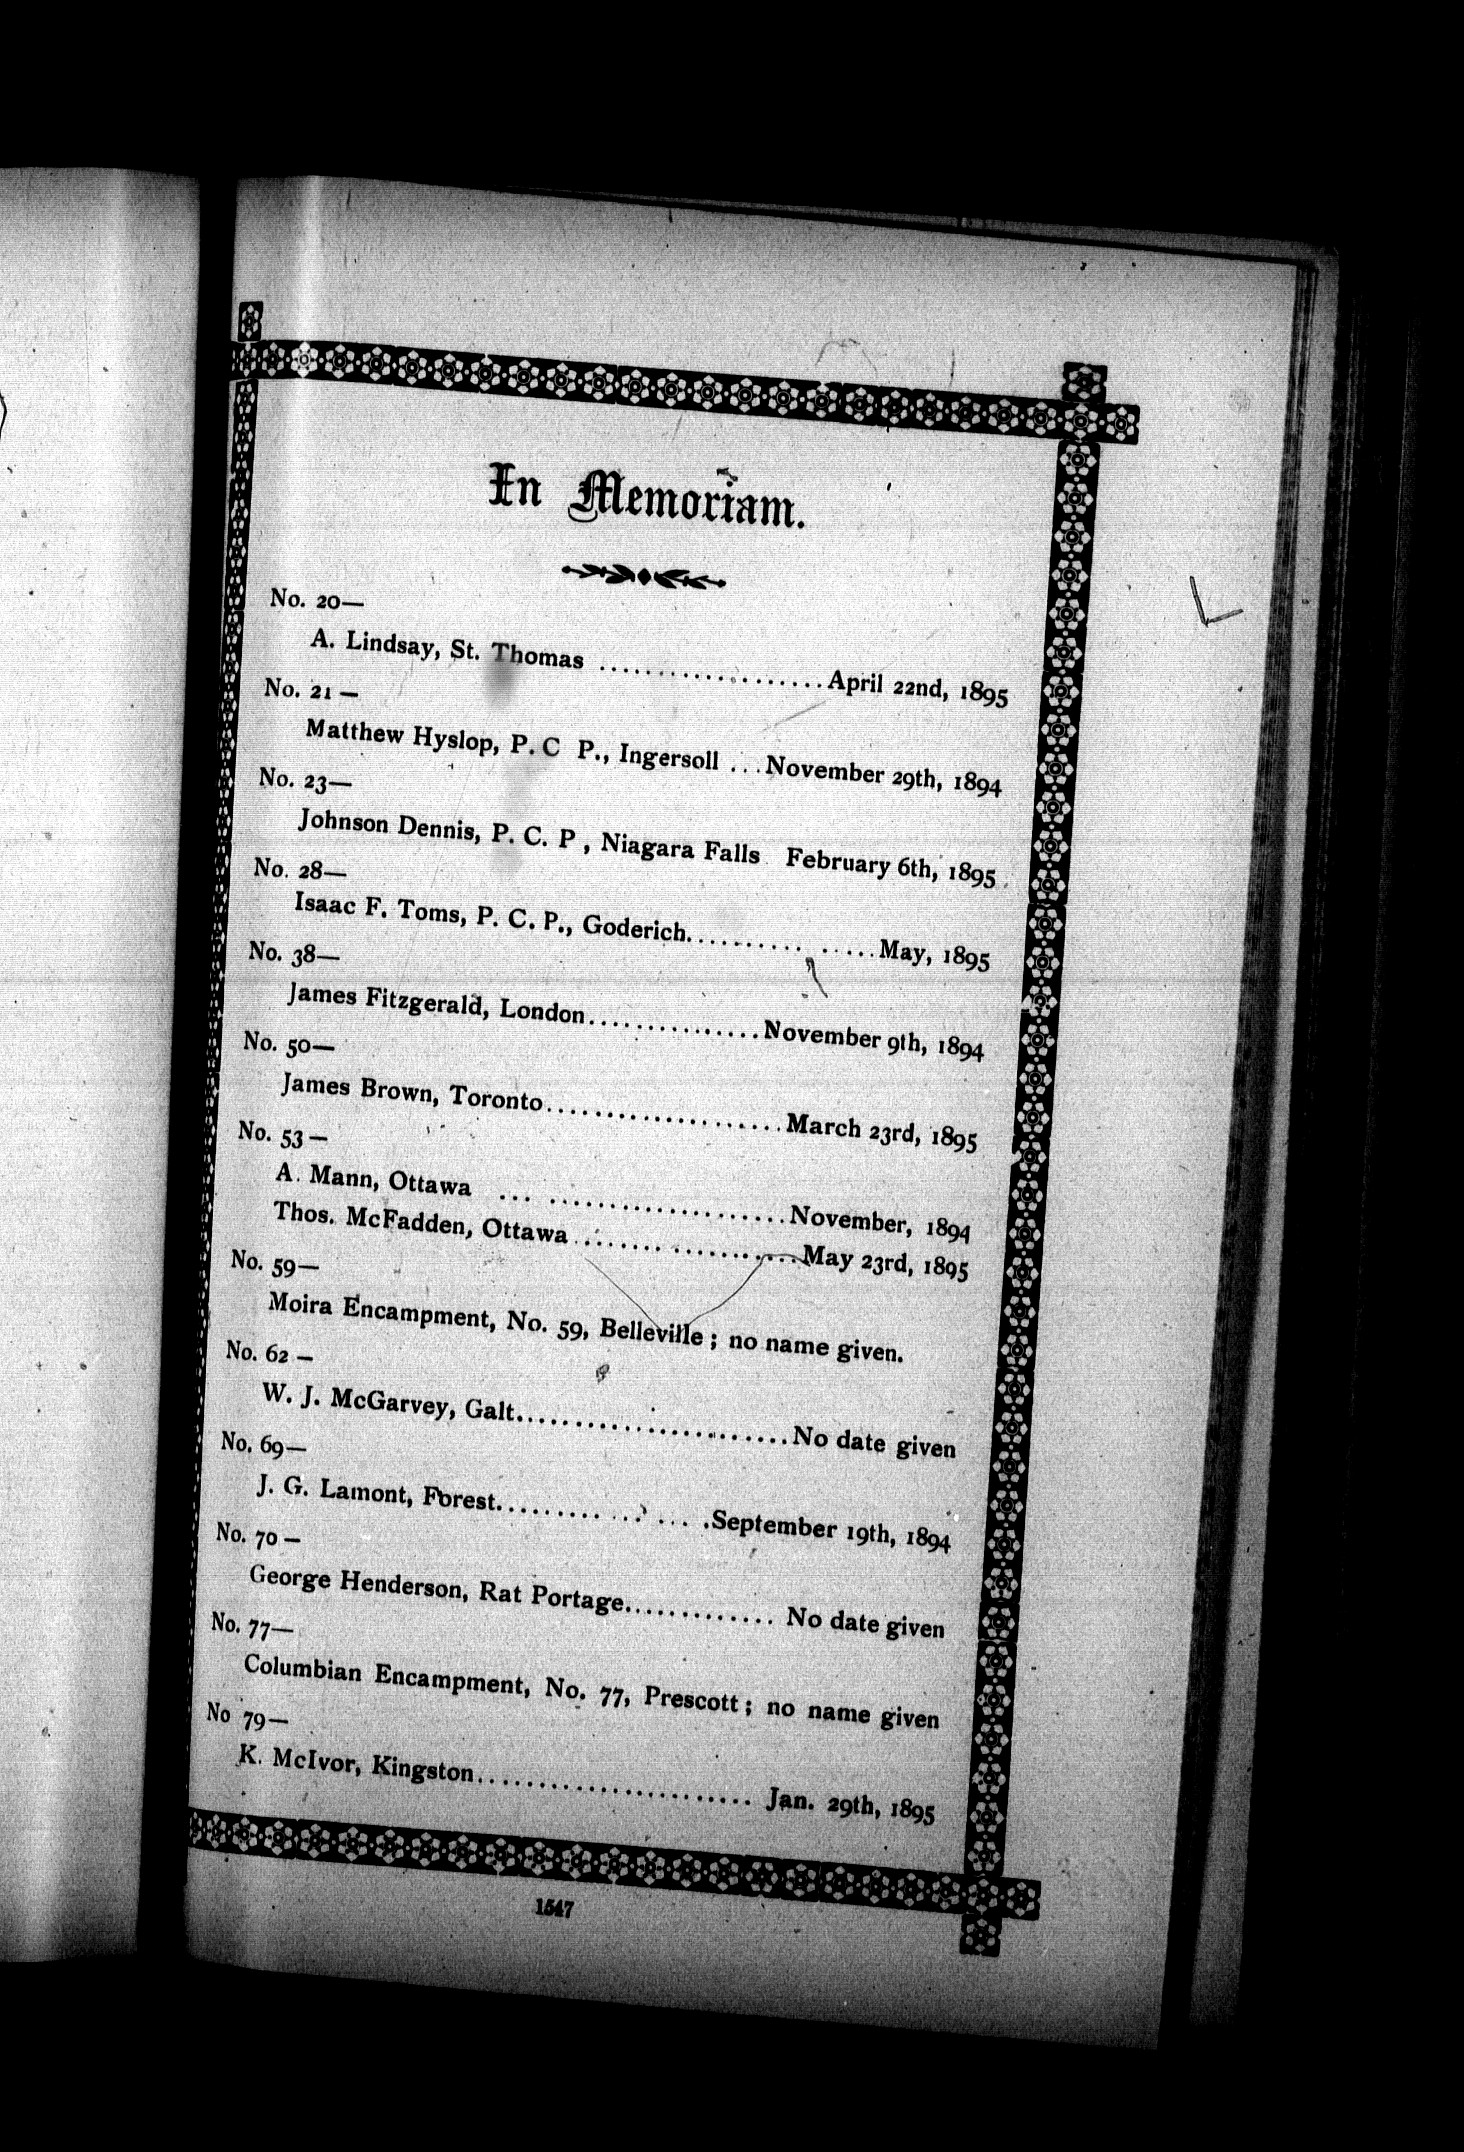 In Memoriam.
No. 20—
A. Lindsay, St. Thomas ...................April 22nd, 1895
No. 21 —
Matthew Hyslop, P. C P., Ingersoll ...November 29th, 1894
No. 23—
Johnson Dennis, P. C. P , Niagara Falls February 6th, 1895
No. 28—
Isaac F. Toms, P. C. P., Goderich.......... .....May, 1895
No. 38—
James Fitzgerald, London...............November 9th, 1894
No. 50—
James Brown, Toronto....................March 23rd, 1895
No. 53 —
A. Mann, Ottawa ... ....................November, 1894
Thos. McFadden, Ottawa........ ...........May 23rd, 1895
No. 59—
Moira Encampment, No. 59, Belleville ; no name given.
No. 62 —
W. J. McGarvey, Galt.......................No date given
No. 69—
J. G. Lamont, Forest......... ... ... .September 19th, 1894
No. 70 —
George Henderson, Rat Portage............. No date given
No. 77—
Columbian Encampment, No. 77, Prescott ; no name given
No 79—
K. McIvor, Kingston....................... Jan. 29th, 1895
1547